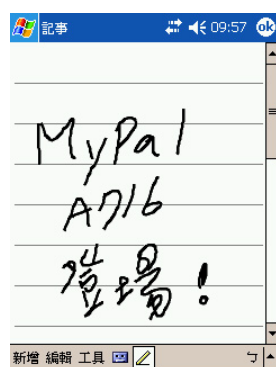 記事 09:57 ok
MyPal
A716
登場!
新增 編輯 工具 ㄅ